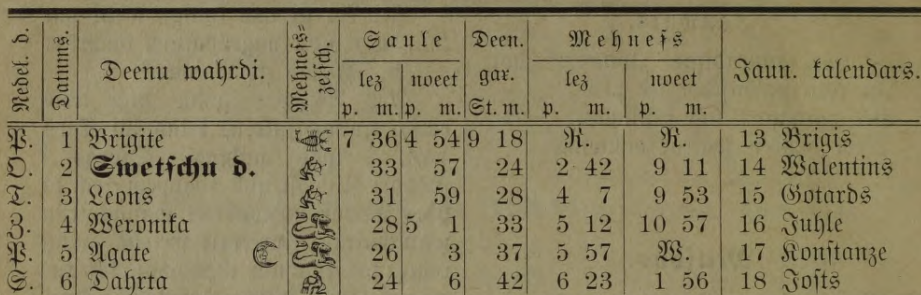 Nedel. d. Datums. Deenu wahrdi. Mehneſs-zelſch. Saule Deen. gar. Mehneſs Jaun. kalendars.
lez noeet lez noeet
p. m. p. m. St. m. p. m. p. m.
P. 1 Brigite 7 36 4 54 9 18 R. R. 13 Brigis
O. 2 Swetſchu d. 33 57 24 2 42 9 11 14 Walentins
T. 3 Leons 31 59 28 4 7 9 53 15 Gotards
Z. 4 Weronika 28 5 1 33 5 12 10 57 16 Juhle
P. 5 Agate 26 3 37 5 57 W. 17 Konſtanze
S. 6 Dahrta 24 6 42 6 23 1 56 18 Joſts